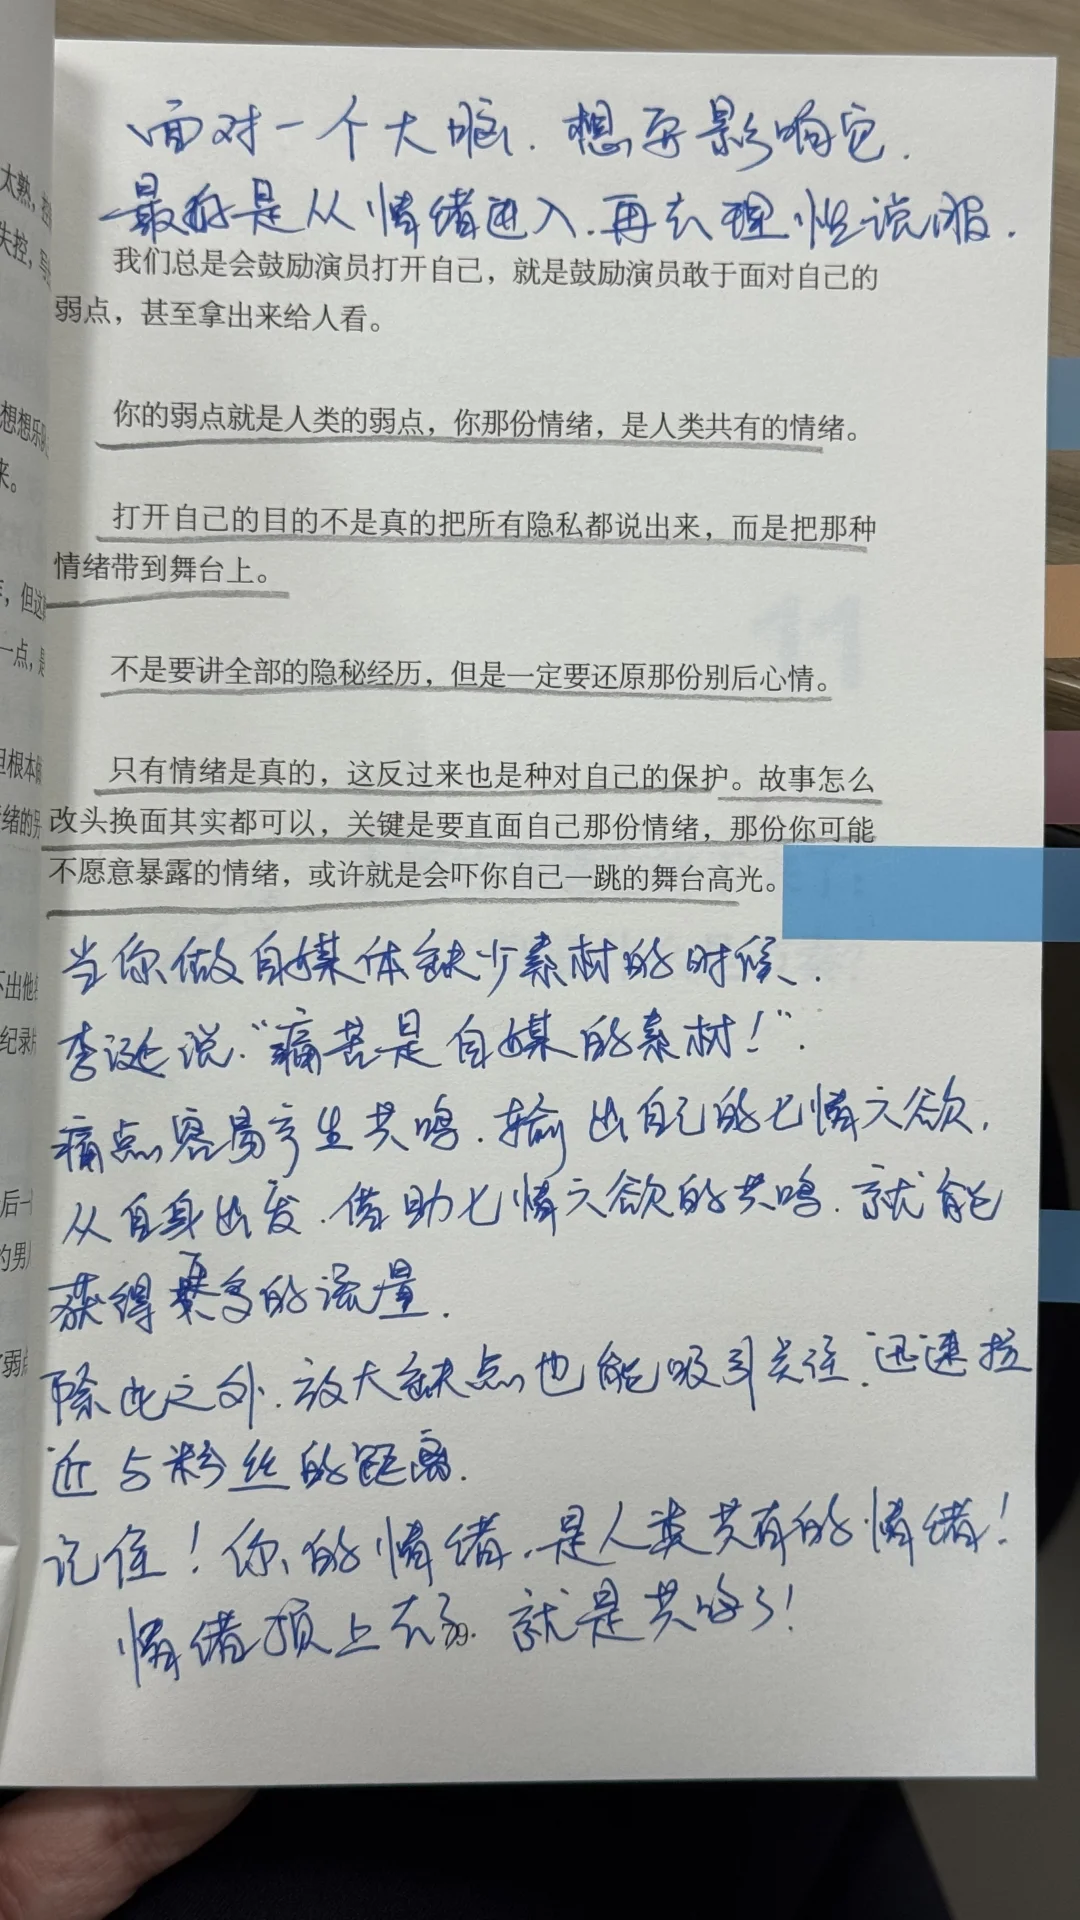 面对一个大脑．想要影响它．
最好是从情绪进入．再去理性说服．
我们总是会鼓励演员打开自己，就是鼓励演员敢于面对自己的
弱点，甚至拿出来给人看。
你的弱点就是人类的弱点，你那份情绪，是人类共有的情绪。
打开自己的目的不是真的把所有隐私都说出来，而是把那种
情绪带到舞台上。
不是要讲全部的隐秘经历，但是一定要还原那份别后心情。
只有情绪是真的，这反过来也是种对自己的保护。故事怎么
改头换面其实都可以，关键是要直面自己那份情绪，那份你可能
不愿意暴露的情绪，或许就是会吓你自己一跳的舞台高光。
当你做自媒体缺少素材的时候．
李诞说．“痛苦是自媒的素材！”．
痛点容易产生共鸣．输出自己的七情六欲．
从自身出发．借助七情六欲的共鸣．就能
获得更多的流量．
除此之外．放大缺点也能吸引关注．迅速拉
近与粉丝的距离．
记住！你的情绪．是人类共有的情绪！
情绪顶上去了．就是共鸣了！
太熟，
失控，
想想乐队
来。
，但这
一点，是
但根本
绪的男
不出他
纪录片
后一
的男
弱点